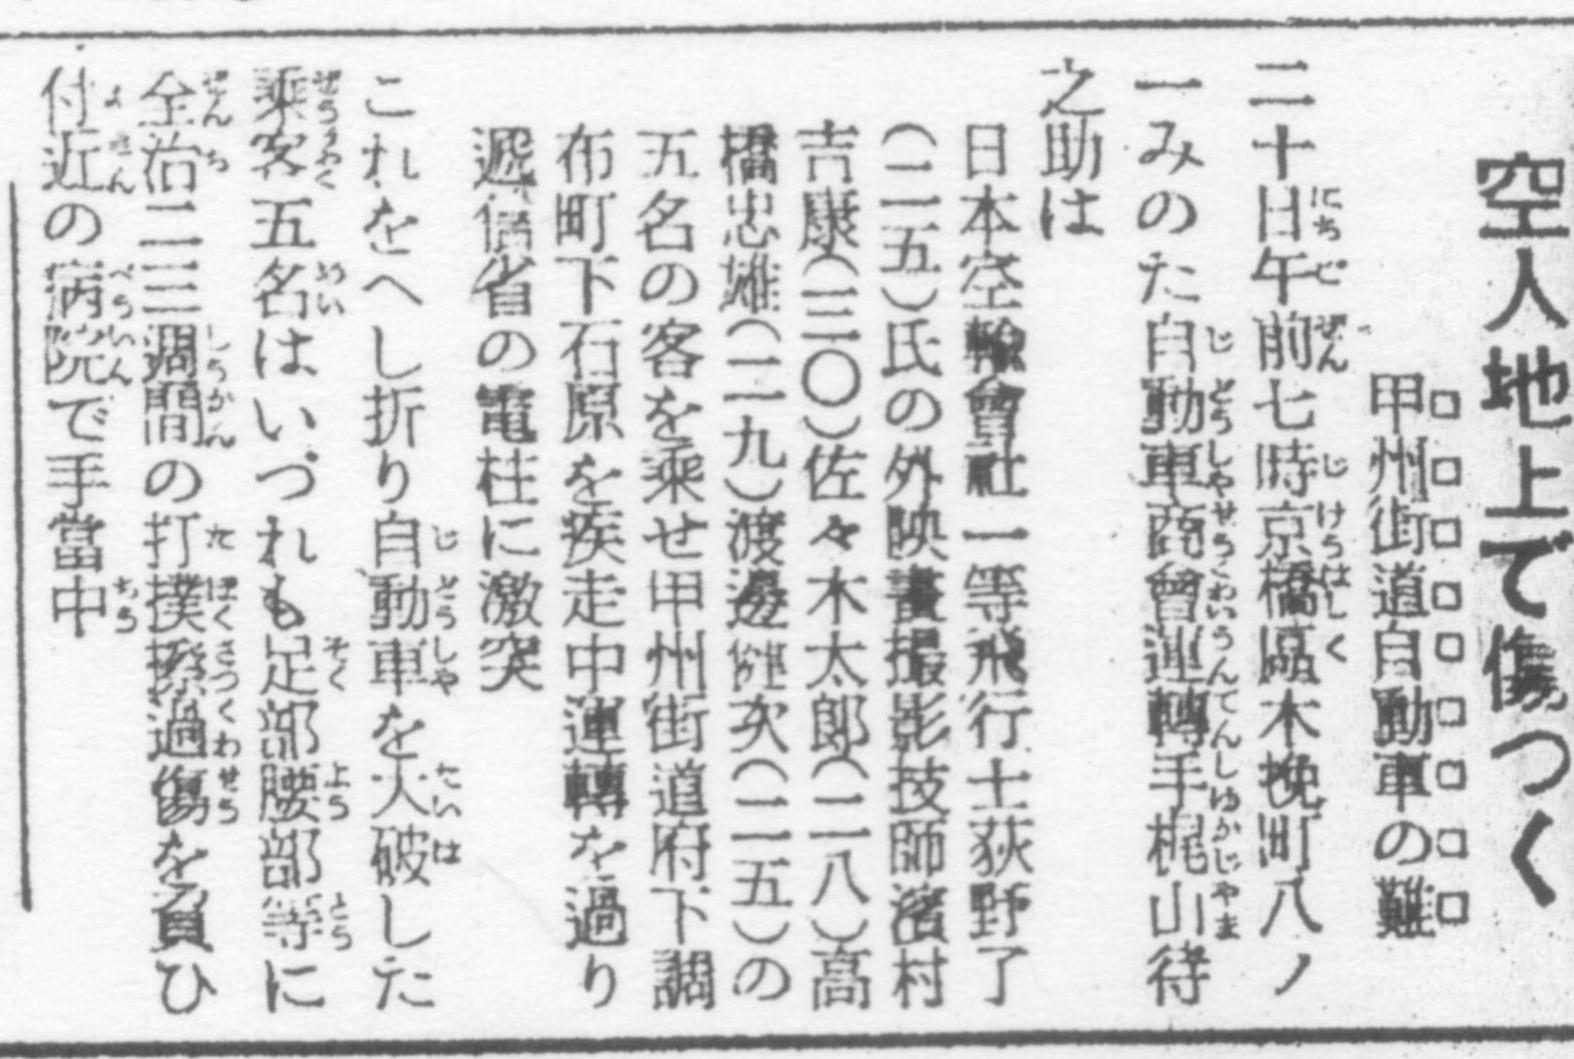 空人地上で傷つく
甲州街道自動車の難
二十日午前七時京橋區木挽町八ノ
一みのた自動車商會運轉手梶山待
之助は
日本空輸會社一等飛行士荻野了
(二五)氏の外映畫撮影技師濱村
吉康(三〇)佐々木太郎(二八)高
橋忠雄(二九)渡邊健次(二五)の
五名の客を乘せ甲州街道府下調
布町下石原を疾走中運轉を過り
遞信省の電柱に激突
これをへし折り自動車を大破した
乘客五名はいづれも足部腰部等に
全治二三週間の打撲擦過傷を負ひ
付近の病院で手當中